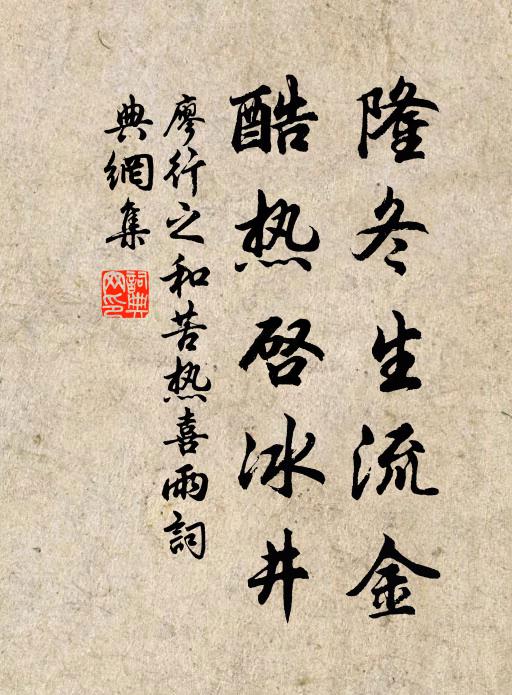 隆冬生流金
酷热启冰井
廖行之和苦热喜雨詞
典網集
詞典网印